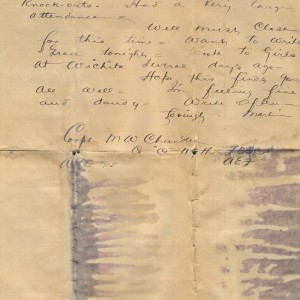 Knock-outs. Had a very large
attendance.
Will must close
for this time - Want to write
Grace tonight. Wrote to Girls
at Wichita several days ago
Hope this finds you
all well - I'm feeling fine
and dandy - Write often
Lovingly
Corp. M W Chandler
AEF